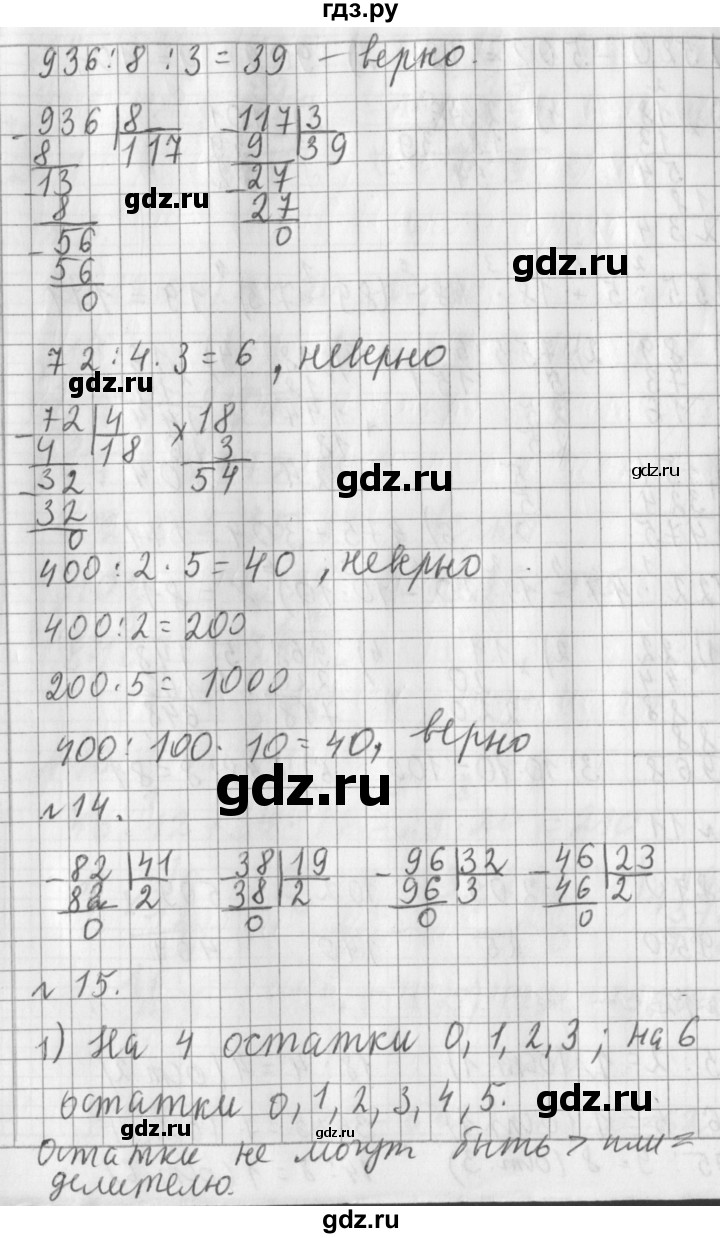 гдз.ру
936:8:3=39 – верно.
936 8 117 3
8 117 9 39
13 27
8 27
56 0
56
0
gdz.ru
gdz.ru
72:4·3=6, неверно
gdz.ru
72 4 × 18
4 18 3
32 54
32
0
gdz.ru
gdz.ru
400:2·5=40, неверно
400:2=200
200·5=1000
400:100·10=40, верно
gdz.ru
№14.
82 41 38 19 96 32 46 23
82 2 38 2 96 3 46 2
0 0 0 0
№15.
1) На 4 остатки 0, 1, 2, 3; на 6
остатки 0, 1, 2, 3, 4, 5.
gdz.ru
gdz.ru
Остатки не могут быть > или =
делителю.
gdz.ru